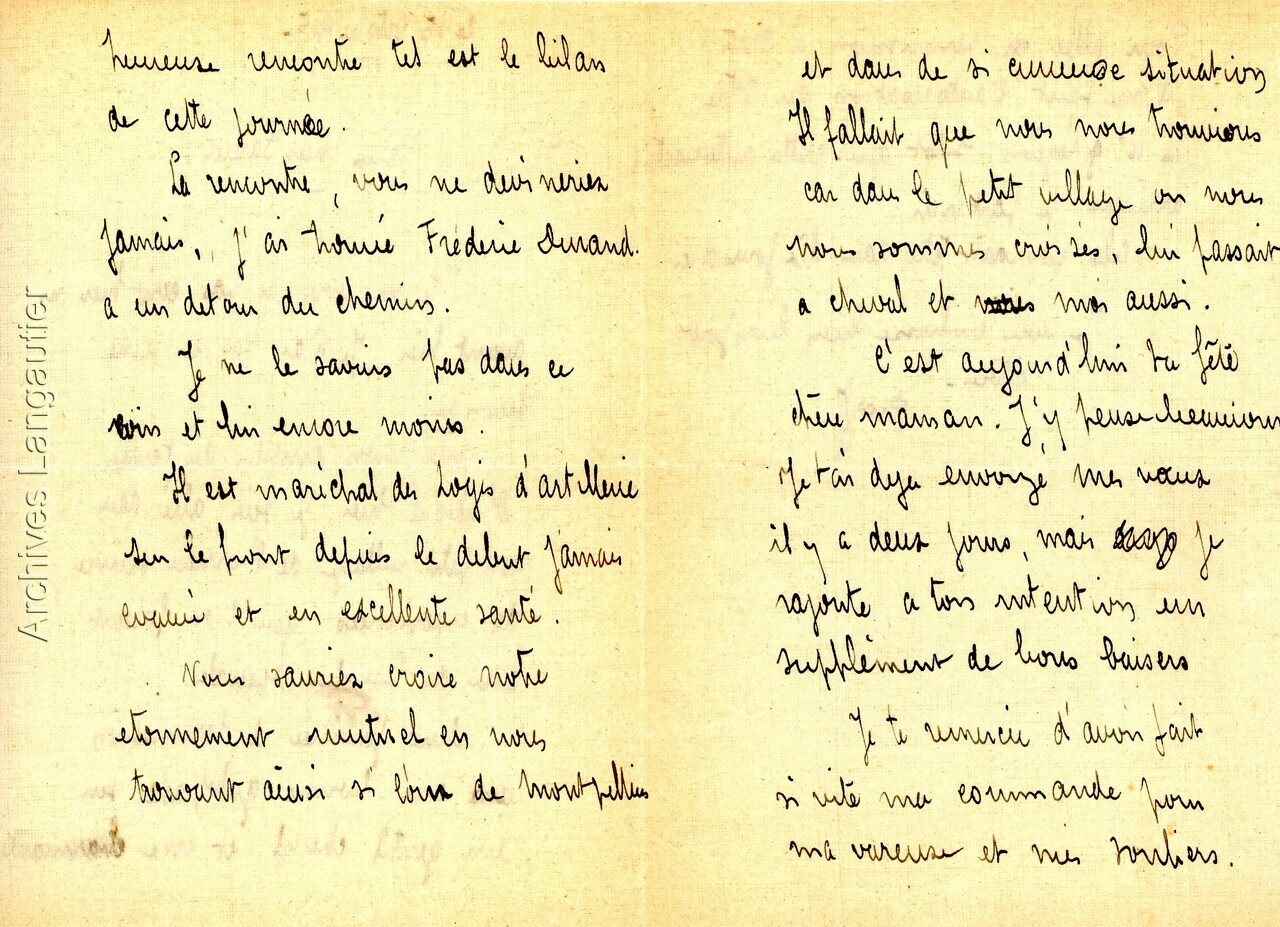 heureuse rencontre tel est le bilan
de cette journée.
La rencontre, vous ne devineriez
jamais, j'ai trouvé Frédéric Durand.
a un detour du chemin.
Je ne le savais pas dans ce
coin et lui encore moins.
Il est maréchal des Logis d'artillerie
sur le front depuis le debut jamais
evacué et en excellente santé.
Vous sauriez croire notre
etonnement mutuel en nous
trouvant ainsi si loin de Montpellier
et dans de si curieuse situation
Il fallait que nous nous trouvions
car dans le petit village ou nous
nous sommes croisés, lui passait
a cheval et moi aussi.
C'est aujourd'hui ta fête
chère maman. J'y pense beaucoup
Je t'ai deja envoyé mes vœux
il y a deux jours, mais je
rajoute a ton intention un
supplément de bons baisers
Je te remercie d'avoir fait
si vite ma commande pour
ma vareuse et mes souliers.
Archives Langautier